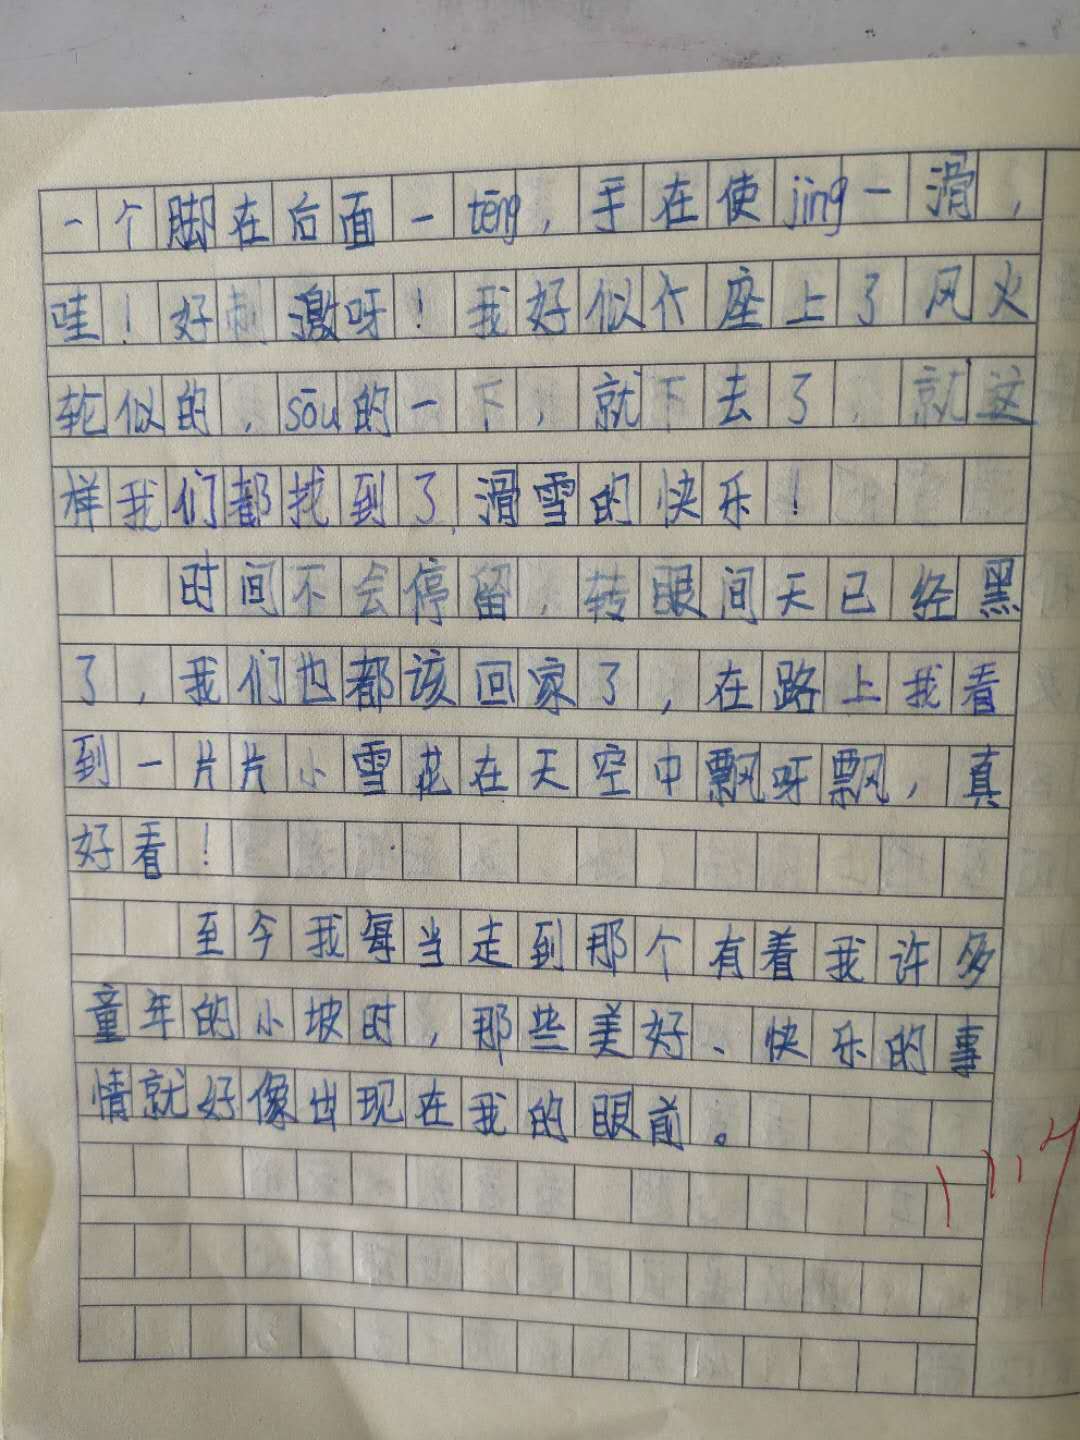 一个脚在后面一tēng,手在使jìng一滑,
哇!好刺激呀!我好似个座上了风火
轮似的,sōu的一下,就下去了,就这
样我们都找到了滑雪的快乐!
时间不会停留,转眼间天已经黑
了,我们也都该回家了,在路上我看
到一片片小雪花在天空中飘呀飘,真
好看!
至今我每当走到那个有着我许多
童年的小坡时,那些美好、快乐的事
情就好像出现在我的眼前。